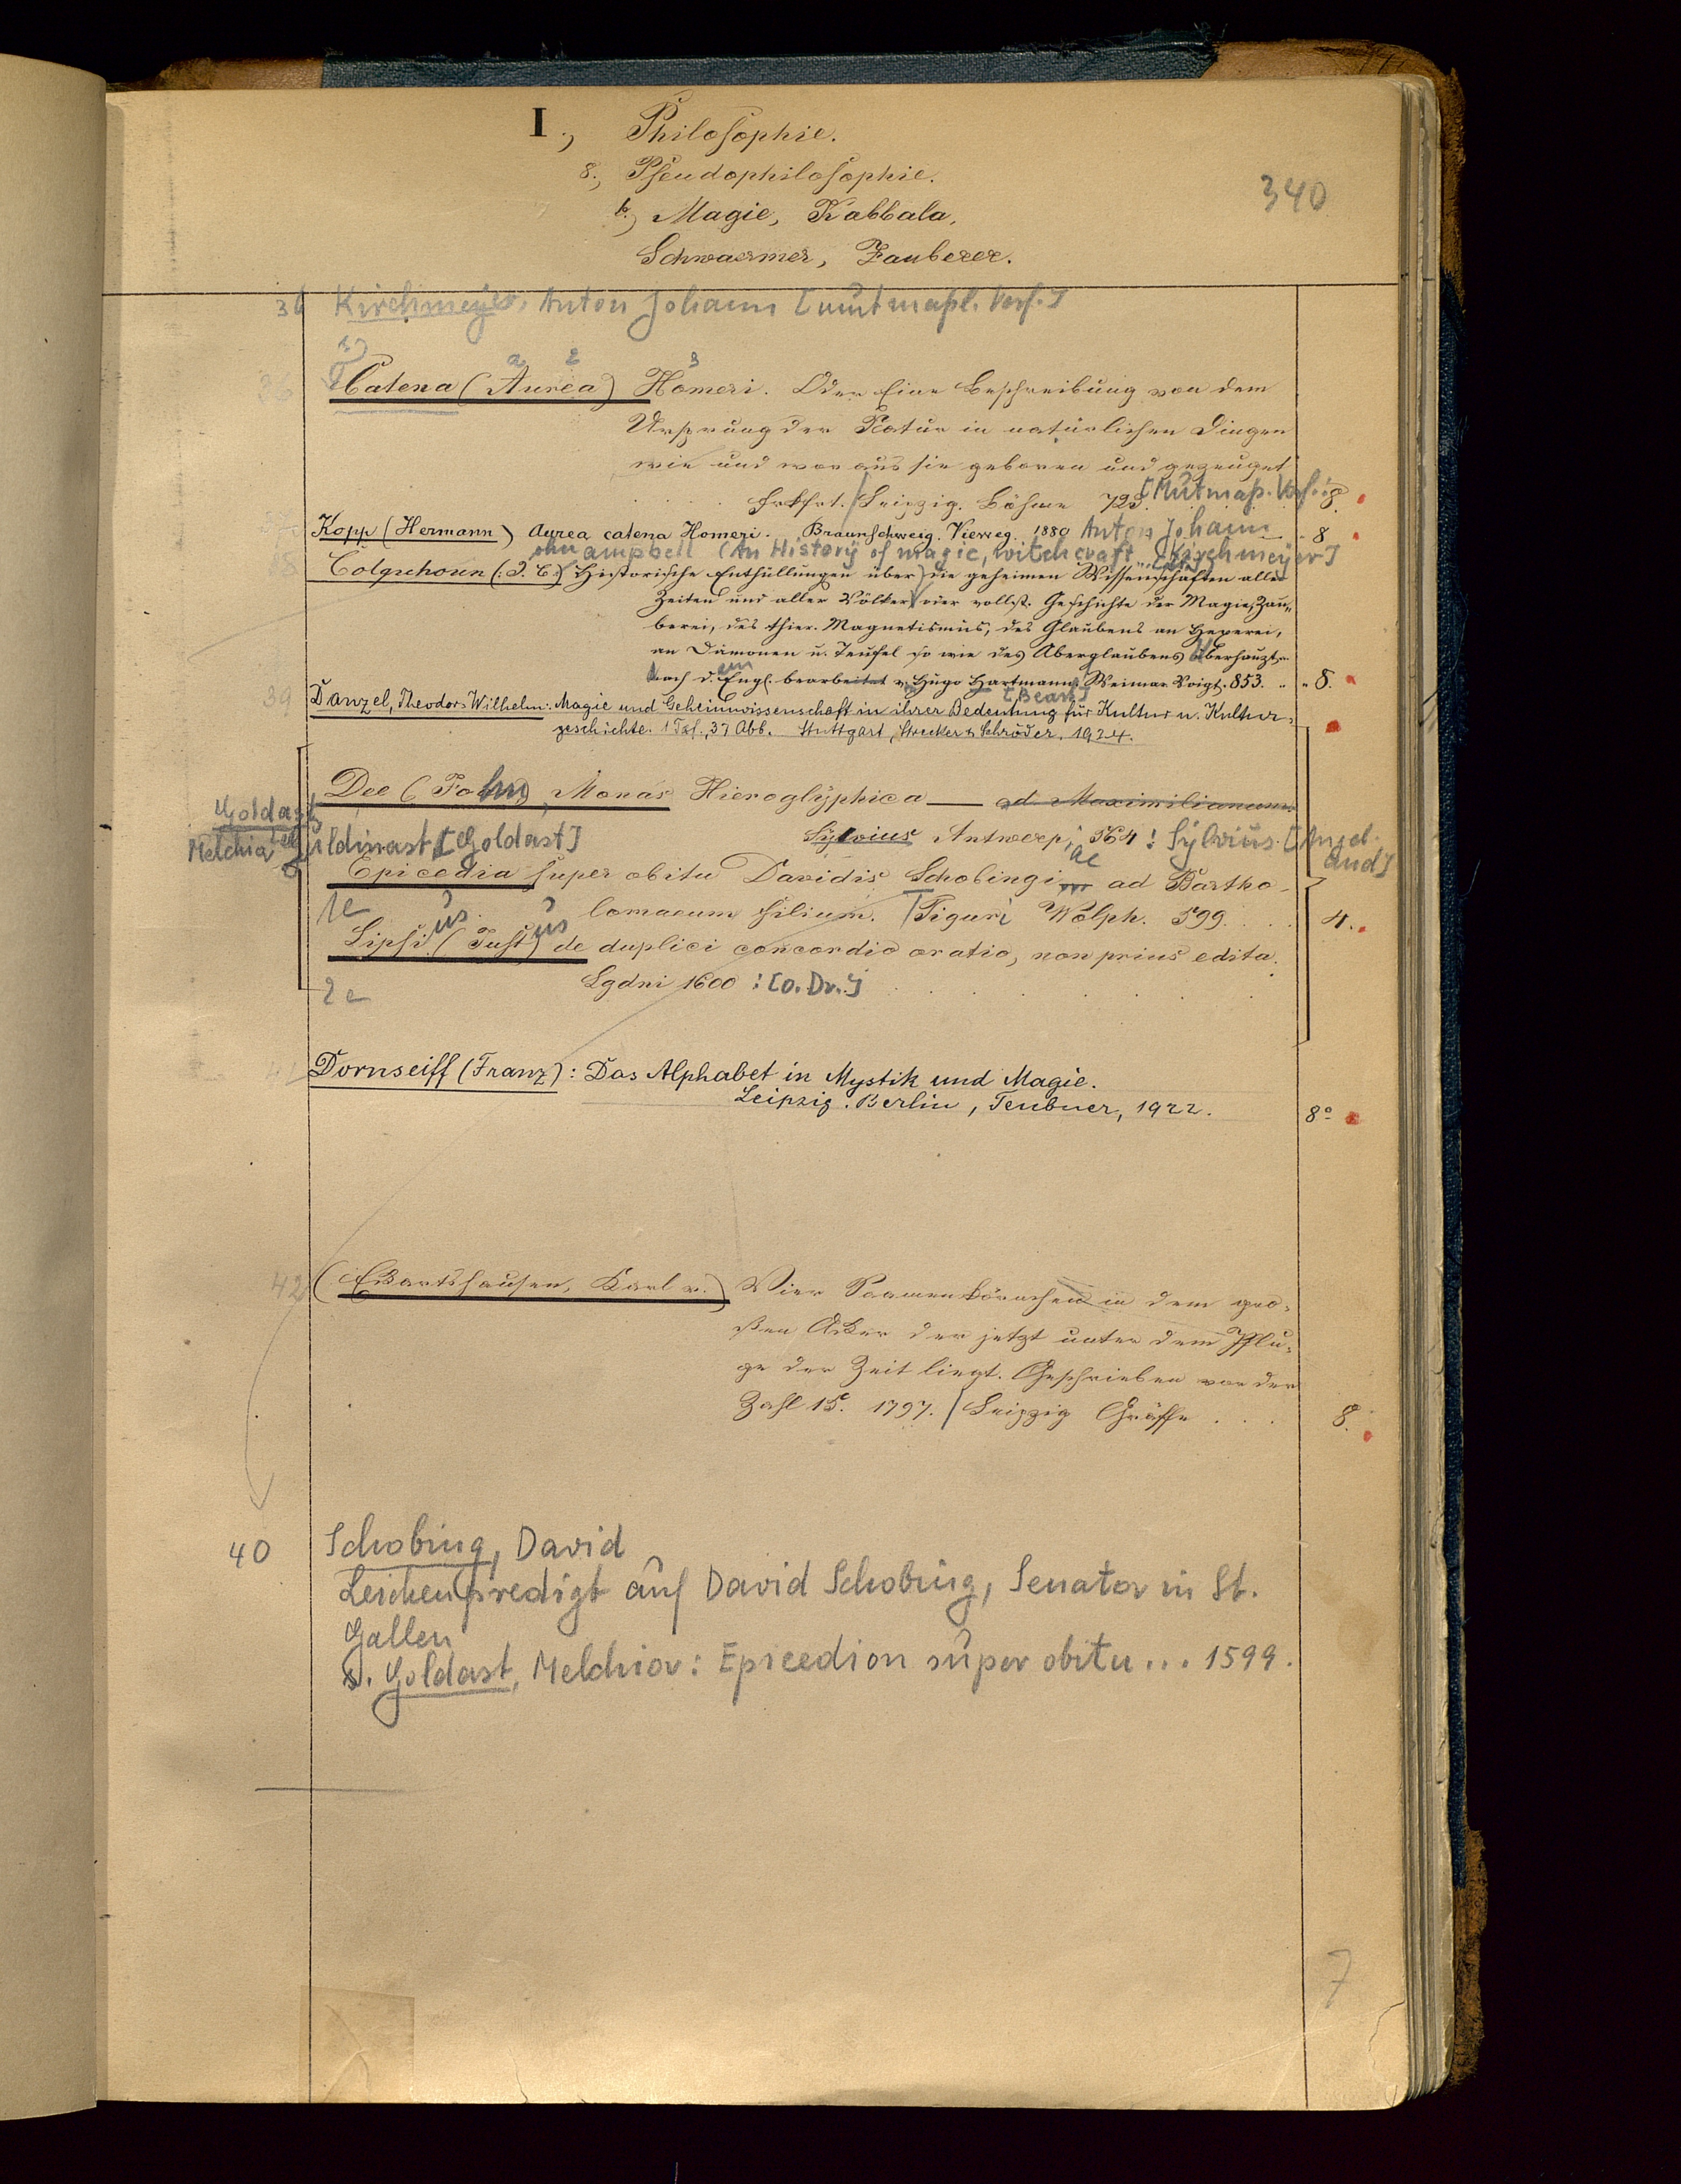 I., Philosophie.
8., Pseudophilosophie.
340
b.) Magie, Kabbala,
Schwaermer, Zauberer.
36 Kirchmeyer, Anton Johann [mutmaßl. Verf.]
1) a 2 3
Catena (Aurea) Homeri. Oder Eine Beschreibung von dem
Ursprung der Natur in natürlichen Dingen
wie und woraus sie geboren und gezeuget
Frkfrt. / Leipzig. Böhme 723. [Mutmaß. Verf.: 8.
Kopp (Hermann) Aurea catena Homeri. Braunschweig. Vieweg. 1880 Anton Johann 8
ohn ampbell (An History of magic, witchcraft Kirchmeyer]
Colquhoun (: J. C.) Historische Enthüllungen über die geheimen Wissenschaften aller
Zeiten und aller Völker oder vollst. Geschichte der Magie, Zau„
berei, des thier. Magnetismus, des Glaubens an Hexerei,
an Dämonen u. Teufel so wie des Aberglaubens überhaupt.
Nach d. Engl. bearbeitet v. Hugo Hartmann. Weimar Voigt. 853. „ „ 8.
em [Bearb.]
39 Danzel, Theodor Wilhelm: Magie und Geheimwissenschaft in ihrer Bedeutung für Kultur u. Kultur-
geschichte. 1 Taf., 37 Abb. Stuttgart, Strecker & Schröder. 1924.
Dee (John), Monas Hieroglyphica — ad Maximilianum
Goldast
Melchior Guldinast [Goldast] Sylvius Antwerp; 564: Sylvius. [Angeb.
ae and]
Epicedia super obitu Davidis Schobingi ad Bartho-
1e lomaeum filium. Tiguri Wolph. 599. . . . 4.
us us
Lipsi (Just) de duplici concordia oratio, non prius edita.
2e Lgdni 1600 : [o. Dr.]
41 Dornseiff (Franz): Das Alphabet in Mystik und Magie.
Leipzig. Berlin, Teubner, 1922. 8°
42 (Eckartshausen, Karl v.) Vier Saamenkörnchen in dem gro-
ßen Acker der jetzt unter dem Pflu-
ge der Zeit liegt. Geschrieben von der
Zahl 15. 1797. / Leipzig Gräffe . . . 8.
40 Schobing, David
Leichenpredigt auf David Schobing, Senator in St.
Gallen
s. Goldast, Melchior: Epicedion super obitu... 1599.
7